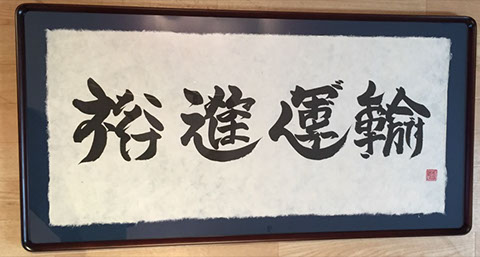 裕進運輸